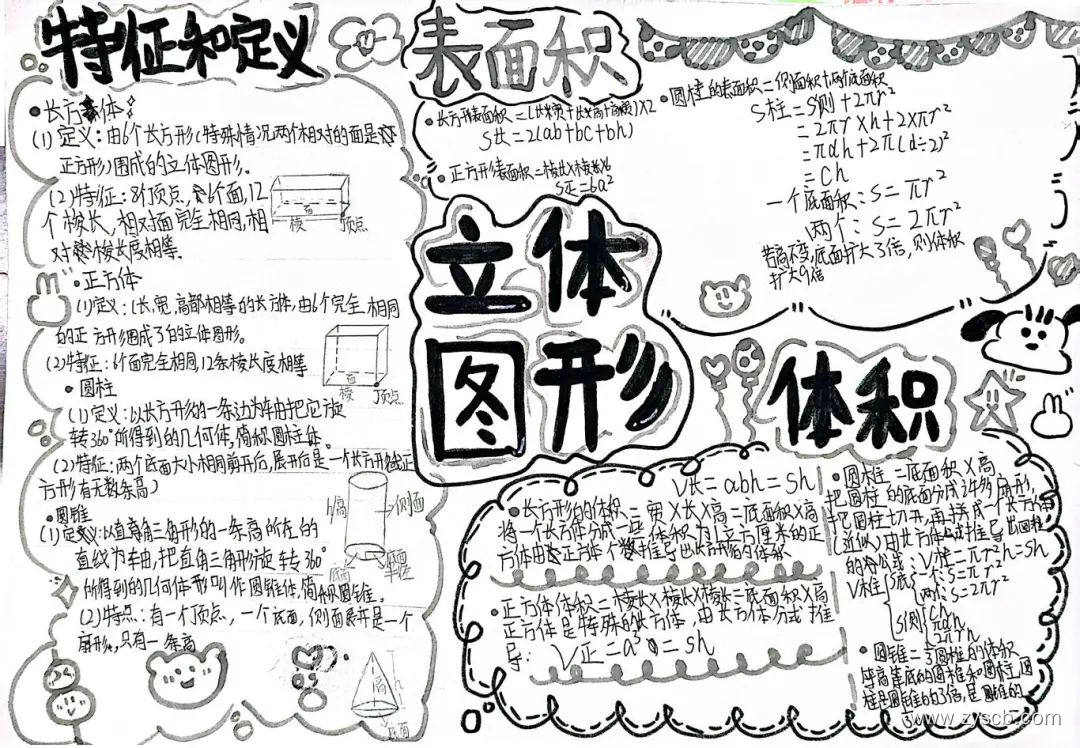 特征和定义
•长方体
(1)定义:由6个长方形(特殊情况两个相对的面是
正方形)围成的立体图形。
(2)特征:8个顶点,6个面,12
个棱长,相对面完全相同,相
对棱长度相等.
棱 顶点
•正方体
(1)定义:(长,宽,高都相等的长方体,由6个完全相同
的正方形围成了的立体图形。
(2)特征:6个面完全相同,12条棱长度相等
面
棱 顶点
•圆柱
(1)定义:以长方形的一条边为轴把它旋
转360°所得到的几何体,简称圆柱体。
(2)特征:两个底面大小相同剪开后,展开后是一个长方形或正
方形(有无数条高)
高 侧面
•圆锥
(1)定义:以直角三角形的一条高所在的
直线为轴,把直角三角形旋转360°
所得到的几何体叫作圆锥体,简称圆锥。
(2)特点:有一个顶点,一个底面,侧面展开是一个
扇形,只有一条高
高h
底面
表面积
•长方形表面积=(长×宽+长×高+高×宽)×2
S长=2(ab+bc+bh)
•正方形表面积=棱长×棱长×6
S正=6a²
•圆柱的表面积=侧面积+两个底面积
S柱=S侧+2πr²
=2πr×h+2×πr²
=πdh+2π(d÷2)²
=Ch
一个底面积:S=πr²
两个:S=2πr²
若高不变,底面扩大3倍,则体积
扩大9倍
立体
图形
体积
V长=abh=Sh
•长方形的体积=宽×长×高=底面积×高
将一个长方体分成一些体积为1立方厘米的正
方体由正方体个数推导出长方形的体积
•正方体体积=棱长×棱长×棱长=底面积×高
正方体是特殊的长方体,由长方体公式推
导:V正=a³=Sh
•圆柱=底面积×高
把圆柱的底面分成许多扇形,
把圆柱切开,再拼成一个长方体
(近似)由长方体
的公式:V柱=πr²h=Sh
V柱 S底 一个:S=πr²
两个:S=2πr²
S侧 Ch
πdh
2πrh
•圆锥=⅓圆柱的体积
等高等底的圆锥和圆柱,圆
柱是圆锥的3倍,是圆锥的
www.zyscb.com